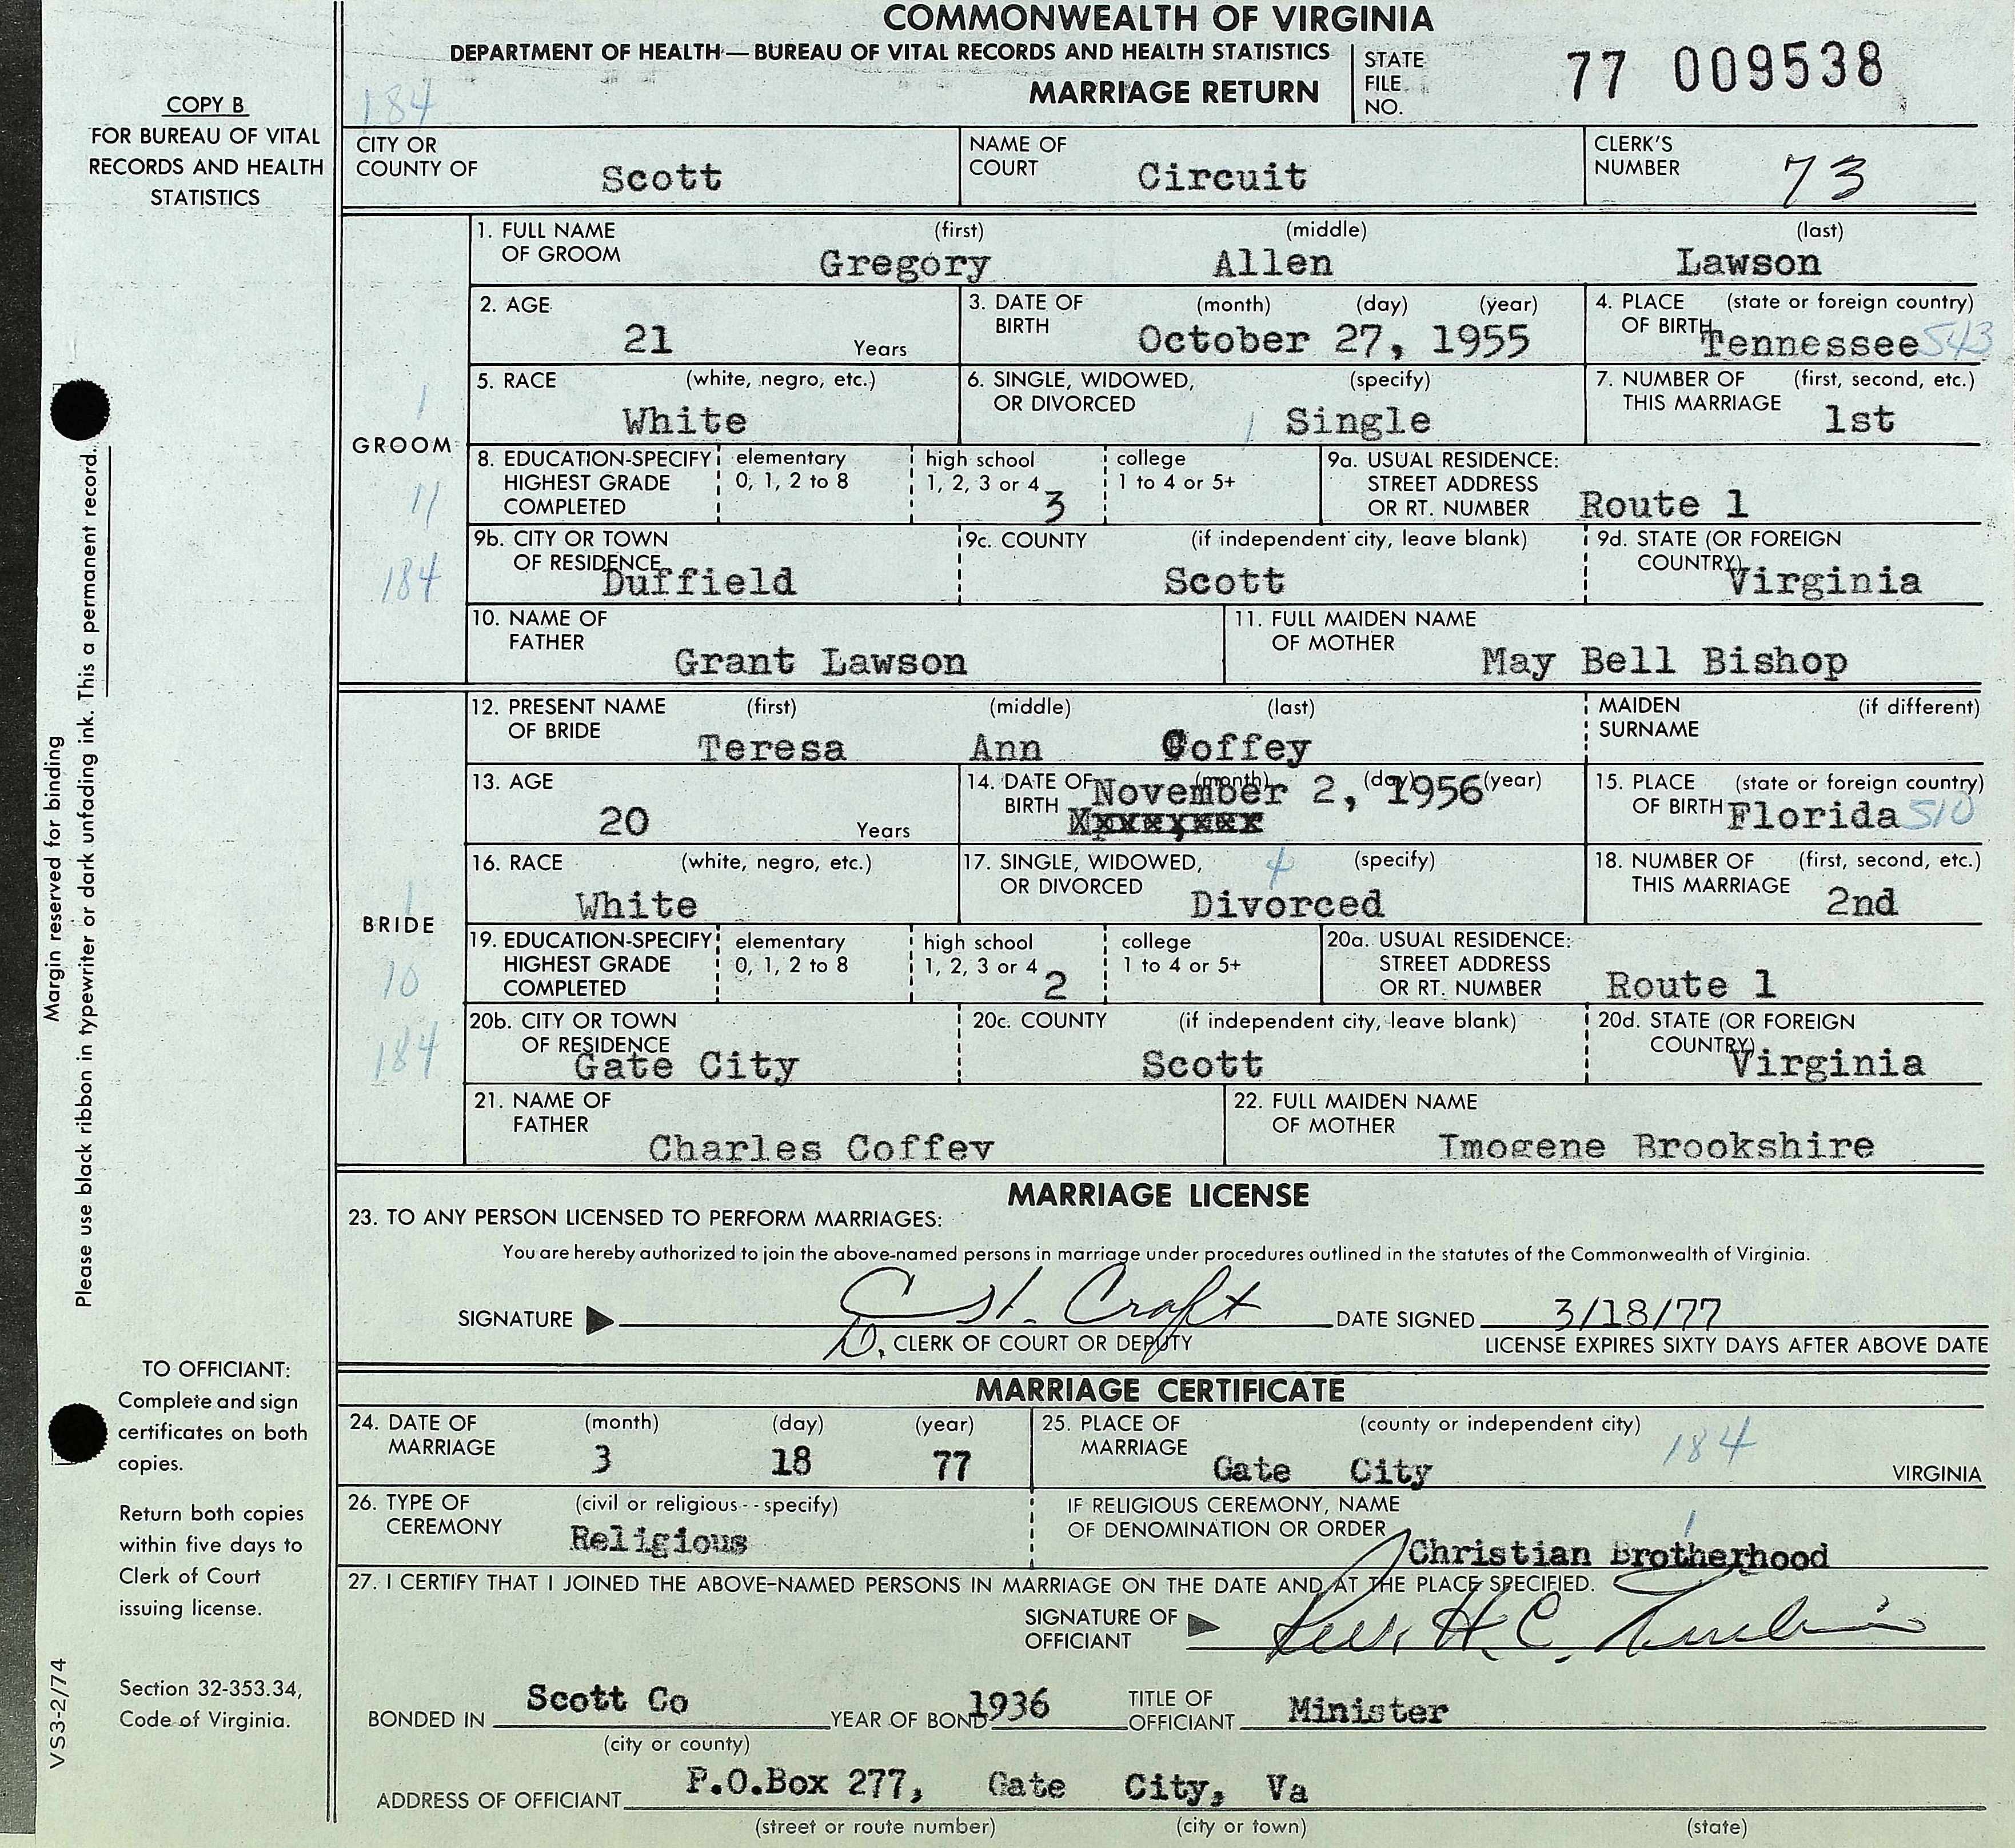 COMMONWEALTH OF VIRGINIA
DEPARTMENT OF HEALTH—BUREAU OF VITAL RECORDS AND HEALTH STATISTICS
MARRIAGE RETURN
STATE FILE NO. 77 009538
184
COPY B
FOR BUREAU OF VITAL
RECORDS AND HEALTH
STATISTICS
CITY OR COUNTY OF Scott NAME OF COURT Circuit CLERK'S NUMBER 73
GROOM
1
11
184
1. FULL NAME OF GROOM (first) Gregory (middle) Allen (last) Lawson
2. AGE 21 Years 3. DATE OF BIRTH (month) (day) (year) October 27, 1955 4. PLACE OF BIRTH (state or foreign country) Tennessee 543
5. RACE (white, negro, etc.) White 6. SINGLE, WIDOWED, OR DIVORCED (specify) 1 Single 7. NUMBER OF THIS MARRIAGE (first, second, etc.) 1st
8. EDUCATION-SPECIFY HIGHEST GRADE COMPLETED elementary 0, 1, 2 to 8 high school 1, 2, 3 or 4 3 college 1 to 4 or 5+ 9a. USUAL RESIDENCE: STREET ADDRESS OR RT. NUMBER Route 1
9b. CITY OR TOWN OF RESIDENCE Duffield 9c. COUNTY (if independent city, leave blank) Scott 9d. STATE (OR FOREIGN COUNTRY) Virginia
10. NAME OF FATHER Grant Lawson 11. FULL MAIDEN NAME OF MOTHER May Bell Bishop
BRIDE
1
10
184
12. PRESENT NAME OF BRIDE (first) Teresa (middle) Ann (last) Coffey MAIDEN SURNAME (if different)
13. AGE 20 Years 14. DATE OF BIRTH (month) (day) (year) November 2, 1956 15. PLACE OF BIRTH (state or foreign country) Florida 510
16. RACE (white, negro, etc.) White 17. SINGLE, WIDOWED, OR DIVORCED 4 (specify) Divorced 18. NUMBER OF THIS MARRIAGE (first, second, etc.) 2nd
19. EDUCATION-SPECIFY HIGHEST GRADE COMPLETED elementary 0, 1, 2 to 8 high school 1, 2, 3 or 4 2 college 1 to 4 or 5+ 20a. USUAL RESIDENCE: STREET ADDRESS OR RT. NUMBER Route 1
20b. CITY OR TOWN OF RESIDENCE Gate City 20c. COUNTY (if independent city, leave blank) Scott 20d. STATE (OR FOREIGN COUNTRY) Virginia
21. NAME OF FATHER Charles Coffey 22. FULL MAIDEN NAME OF MOTHER Imogene Brookshire
MARRIAGE LICENSE
23. TO ANY PERSON LICENSED TO PERFORM MARRIAGES:
You are hereby authorized to join the above-named persons in marriage under procedures outlined in the statutes of the Commonwealth of Virginia.
SIGNATURE Craft DATE SIGNED 3/18/77
D. CLERK OF COURT OR DEPUTY LICENSE EXPIRES SIXTY DAYS AFTER ABOVE DATE
MARRIAGE CERTIFICATE
24. DATE OF MARRIAGE (month) 3 (day) 18 (year) 77 25. PLACE OF MARRIAGE (county or independent city) Gate City 184 VIRGINIA
26. TYPE OF CEREMONY (civil or religious--specify) Religious IF RELIGIOUS CEREMONY, NAME OF DENOMINATION OR ORDER 1 Christian Brotherhood
27. I CERTIFY THAT I JOINED THE ABOVE-NAMED PERSONS IN MARRIAGE ON THE DATE AND AT THE PLACE SPECIFIED.
SIGNATURE OF OFFICIANT Rev. H. C.
BONDED IN Scott Co YEAR OF BOND 1936 TITLE OF OFFICIANT Minister
(city or county)
ADDRESS OF OFFICIANT P.O.Box 277, Gate City, Va
(street or route number) (city or town) (state)
Margin reserved for binding
Please use black ribbon in typewriter or dark unfading ink. This a permanent record.
TO OFFICIANT:
Complete and sign
certificates on both
copies.
Return both copies
within five days to
Clerk of Court
issuing license.
Section 32-353.34,
Code of Virginia.
VS3-2/74